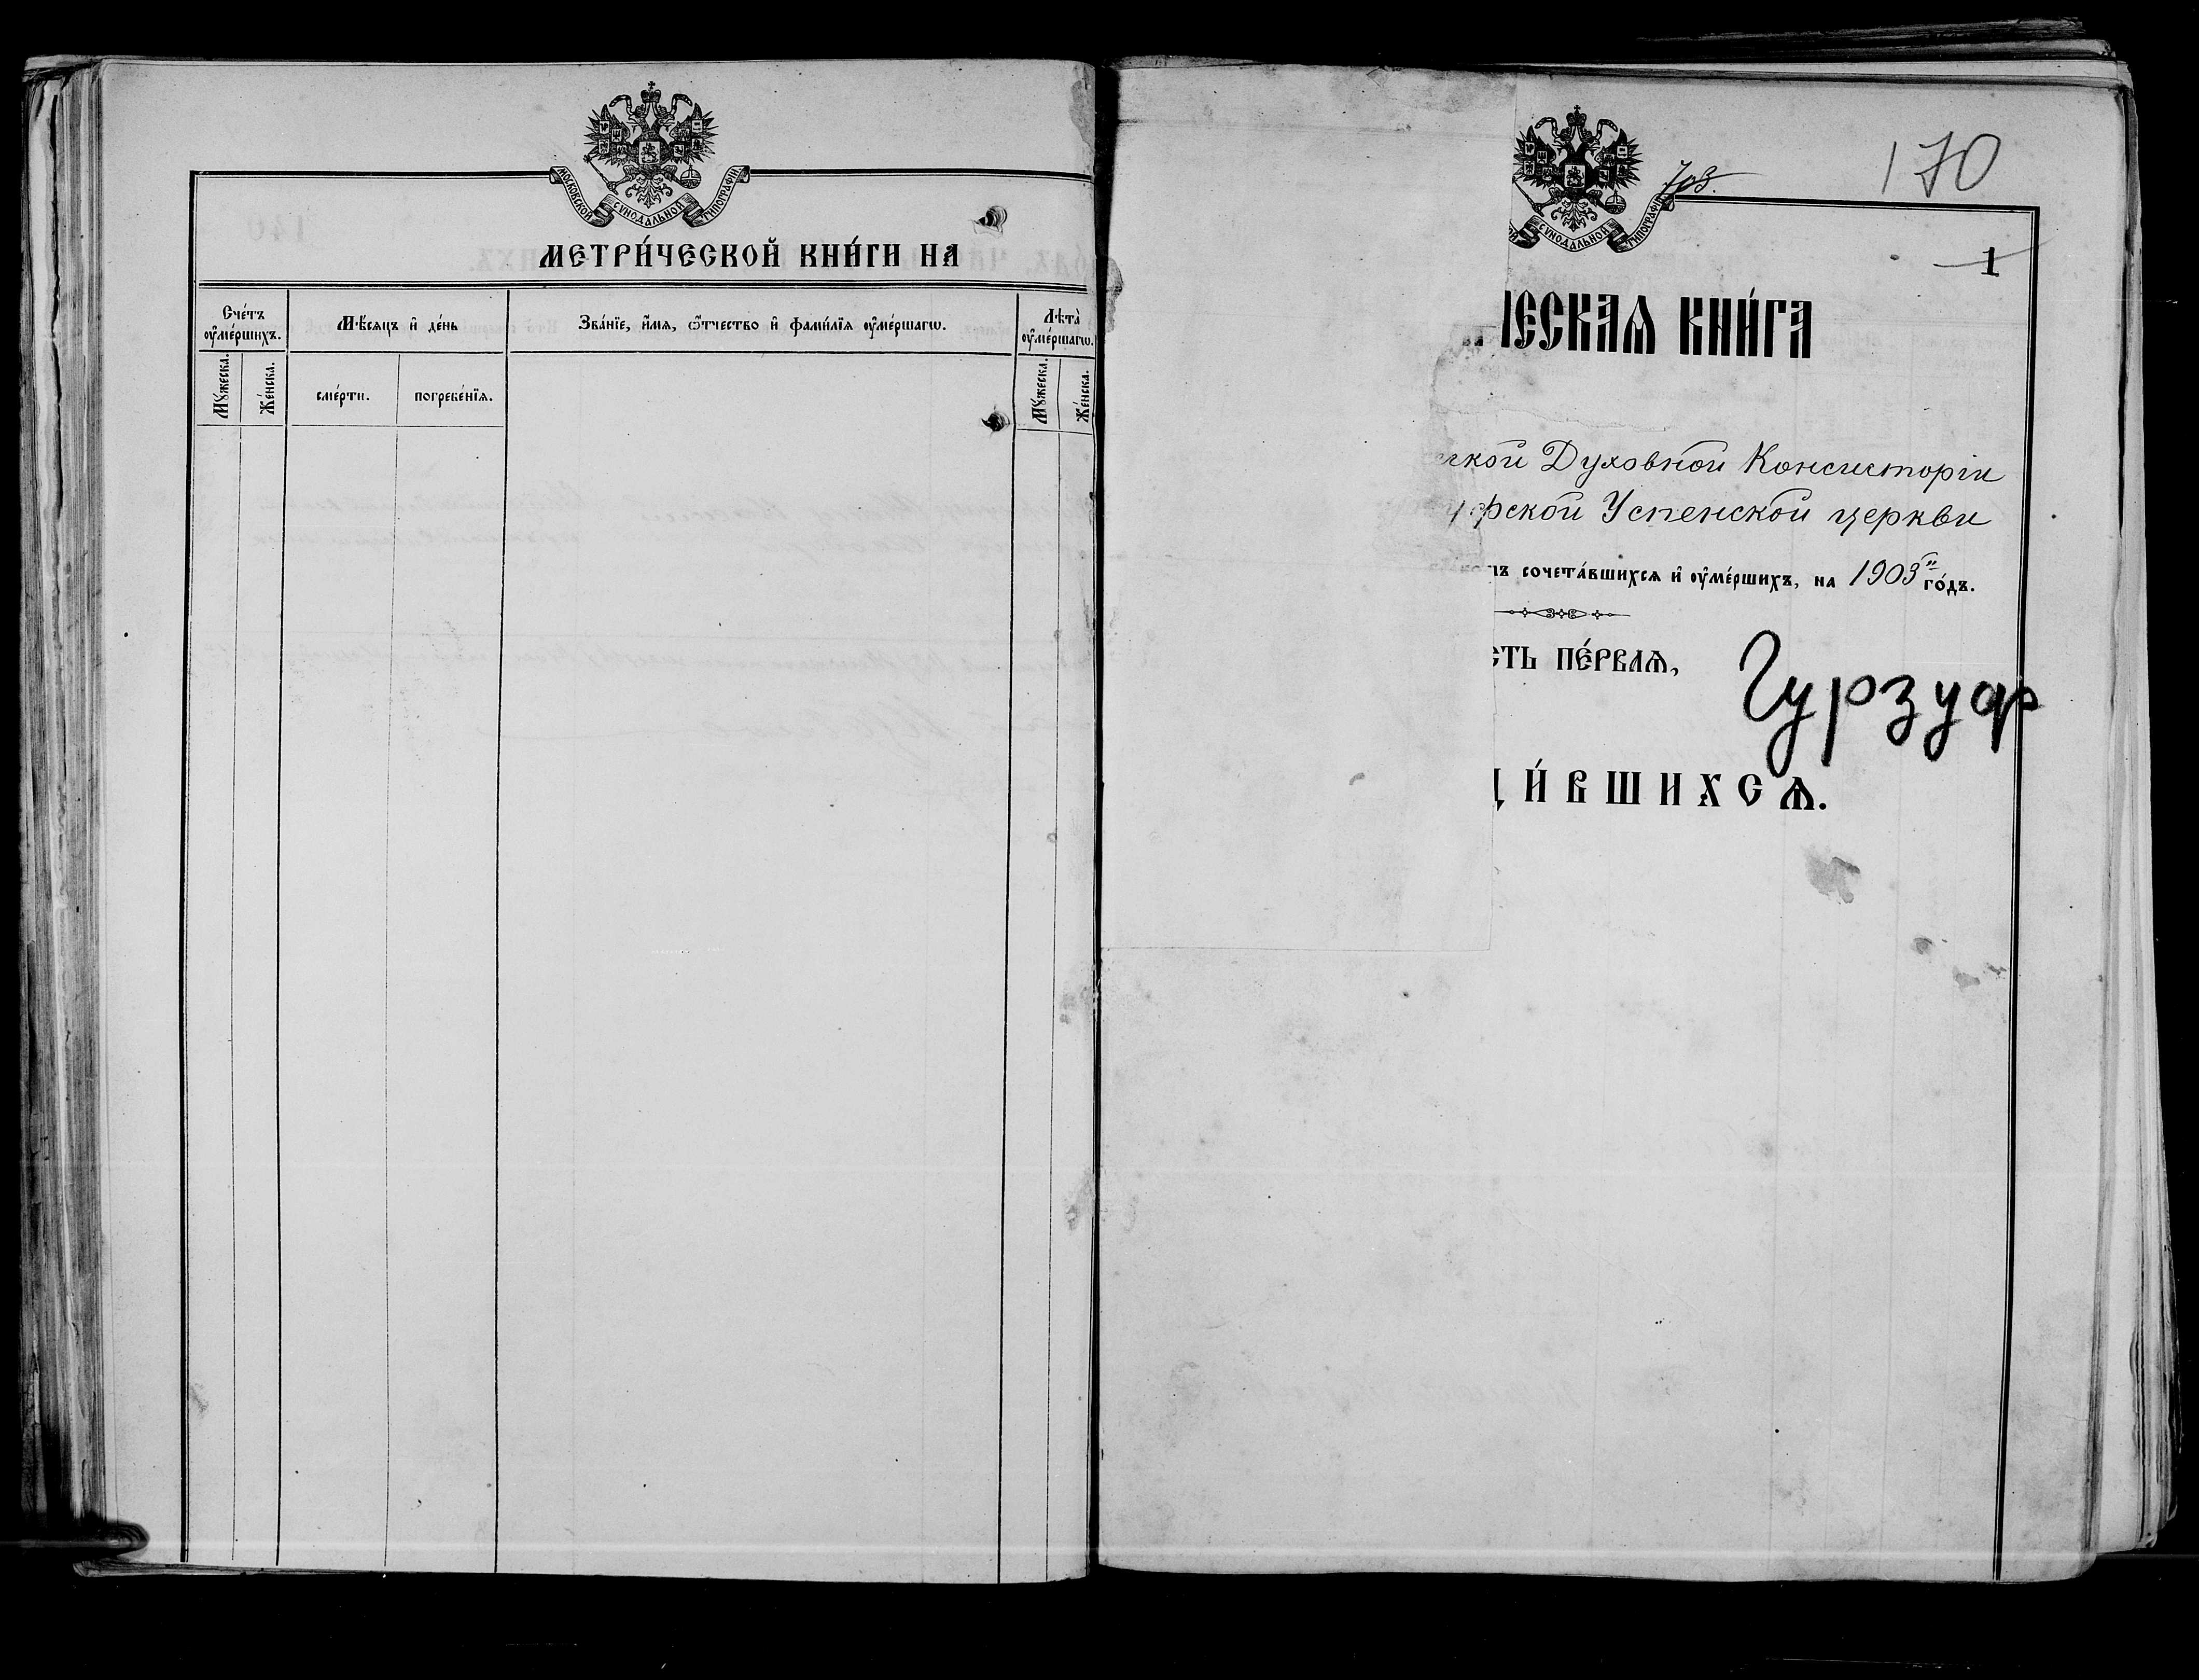 МОСКОВСКОЙ СѴНОДАЛЬНОЙ ТИПОГРАФІИ
МЕТРИ́ЧЕСКОЙ КНИ́ГИ НА
Сче́тъ
оу҆ме́ршихъ.
Мѣ́сяцъ и҆ де́нь
Зва́нїе, и҆́мя, ѻ҆́тчество и҆ фами́лїя оу҆ме́ршагѡ.
Лѣ́та
оу҆ме́ршагѡ.
Мꙋ́жеска.
Же́нска.
сме́рти.
погребе́нїя.
Мꙋ́жеска.
Же́нска.
СѴНОДАЛЬНОЙ ТИПОГРАФІИ
703.
170
1
ЧЕСКАѦ КНИ́ГА
ской Духовной Консисторіи
уфской Успенской церкви
мъ сочета́вшихсѧ и҆ оу҆ме́ршихъ, на 1903й го́дъ.
СТЬ ПЕ́РВАѦ,
Гурзуф
ДИ́ВШИХСѦ.